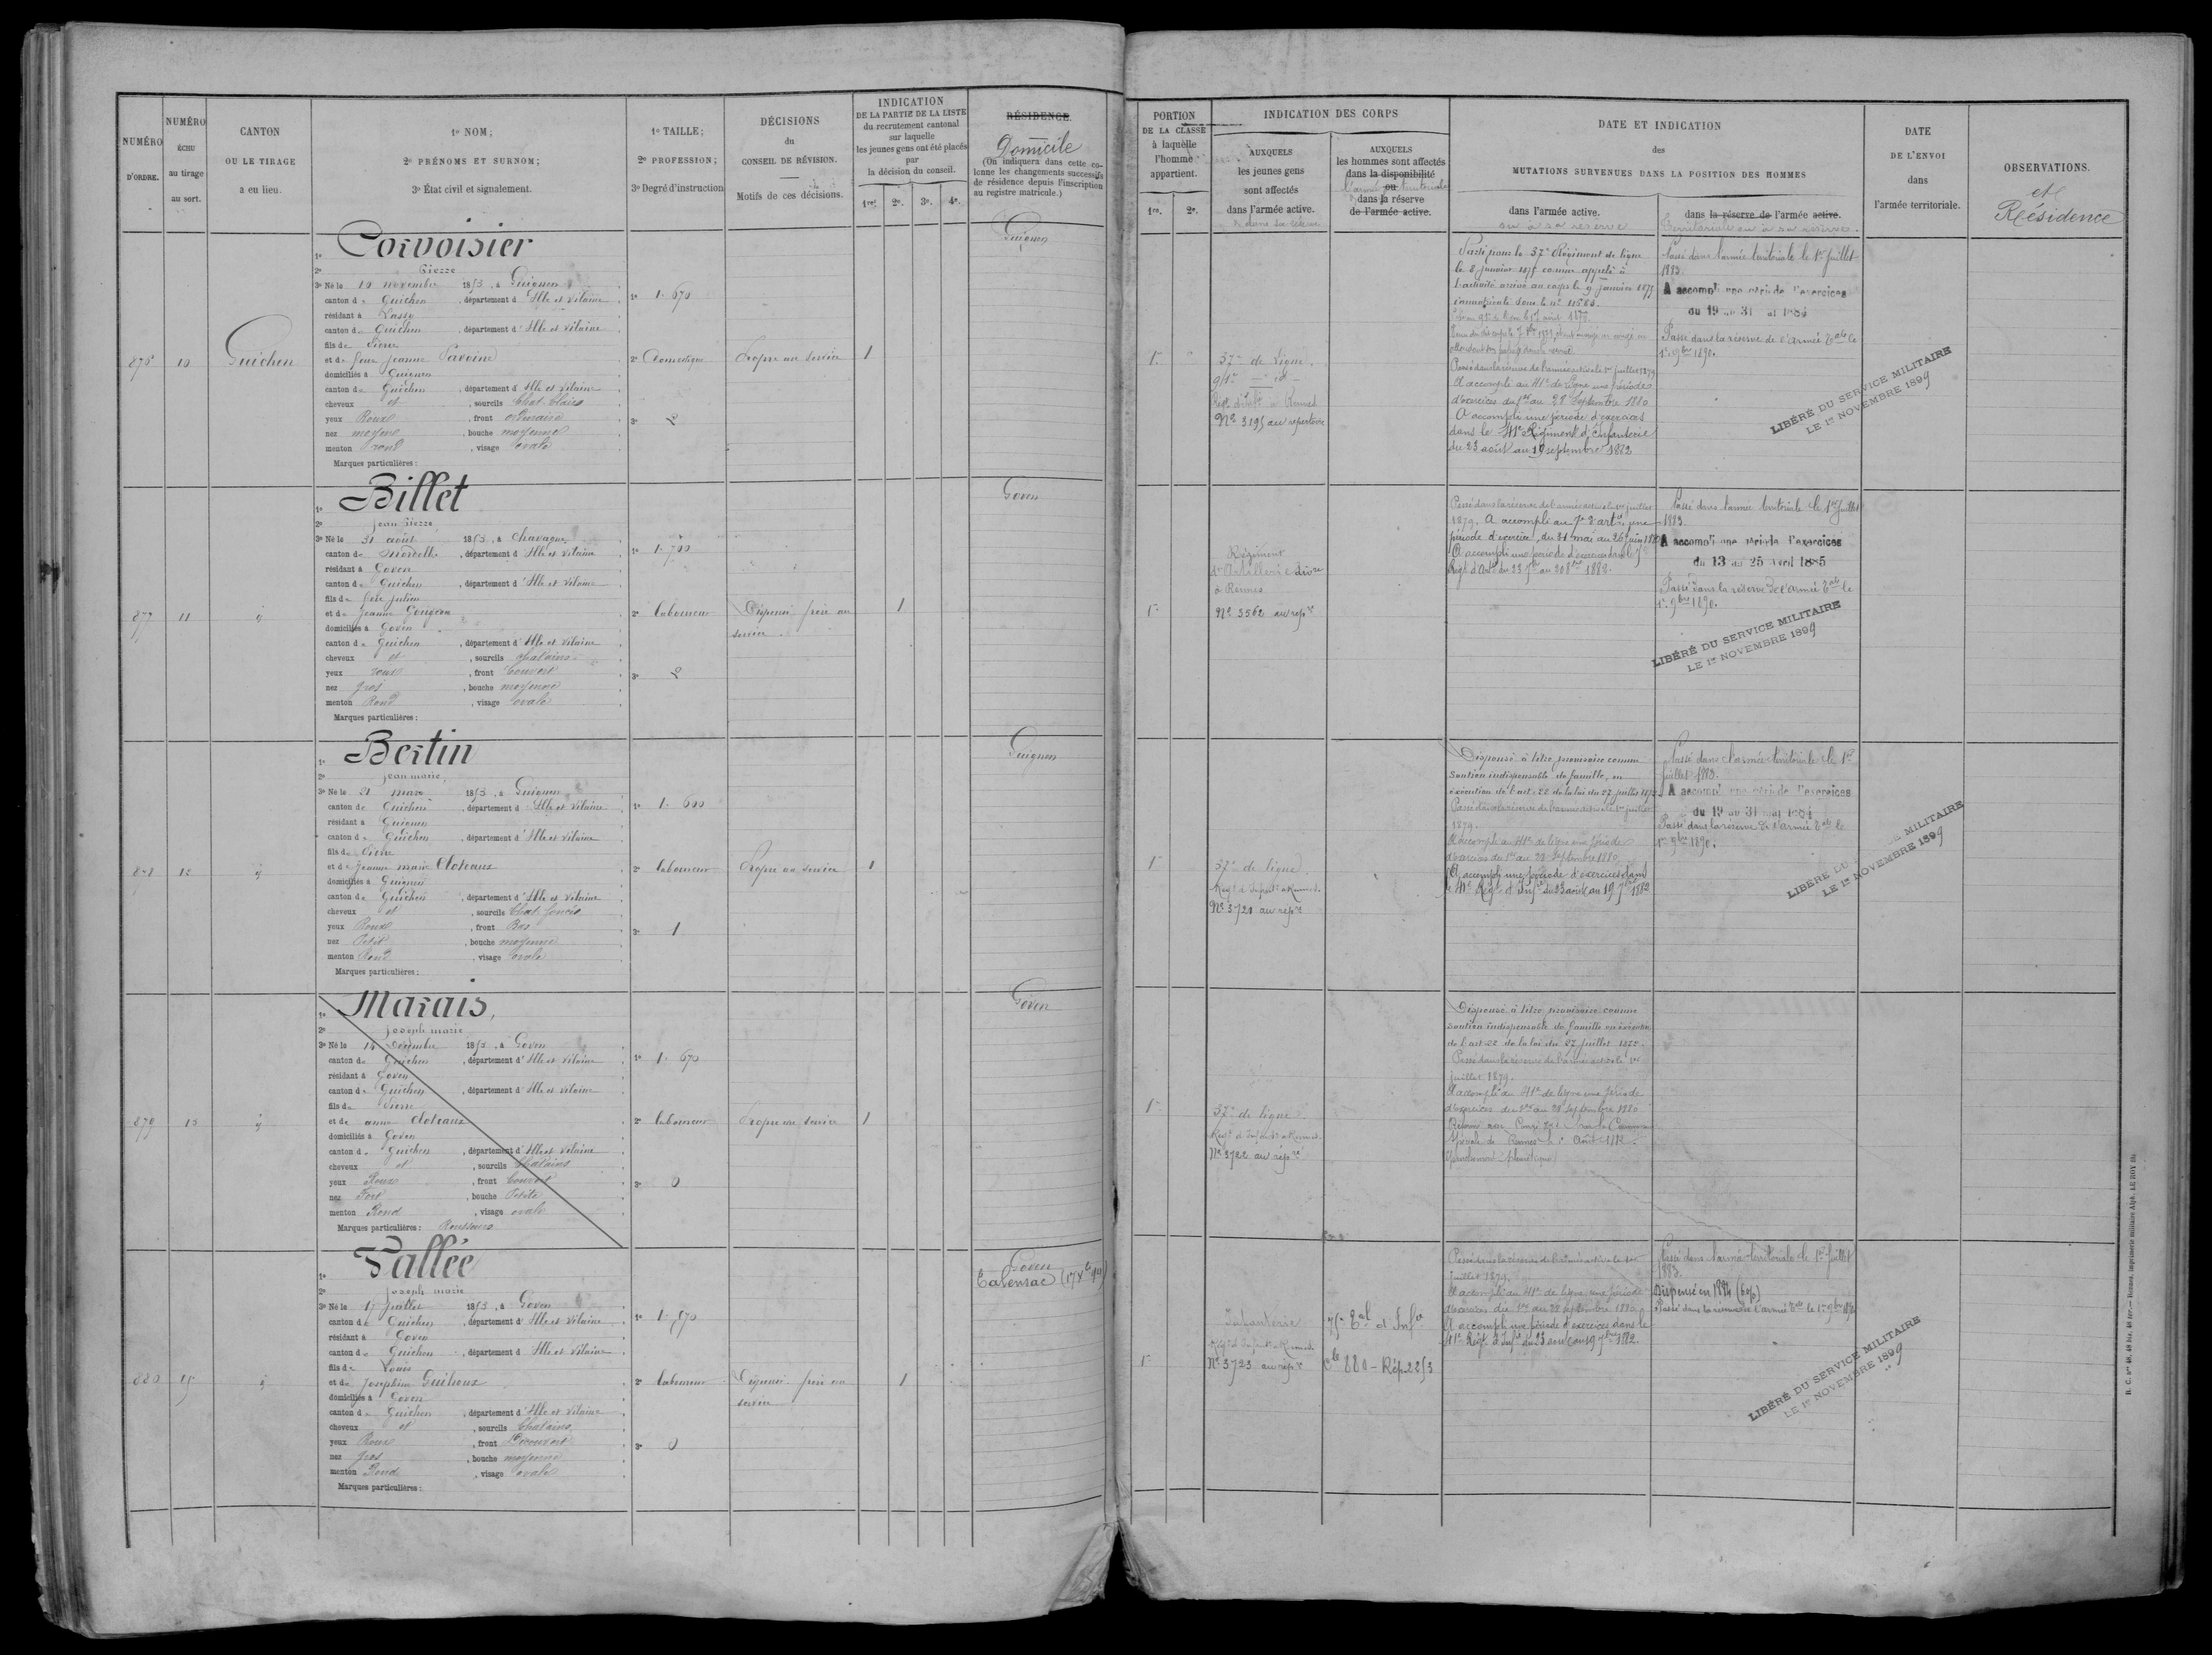 NUMÉRO
D'ORDRE.
NUMÉRO
ÉCHU
au tirage
au sort.
CANTON
OU LE TIRAGE
a eu lieu.
1º NOM;
2º PRÉNOMS ET SURNOM;
3º État civil et signalement.
1º TAILLE;
2º PROFESSION;
3º Degré d'instruction
DÉCISIONS
du
CONSEIL DE RÉVISION.
Motifs de ces décisions.
INDICATION
DE LA PARTIE DE LA LISTE
du recrutement cantonal
sur laquelle
les jeunes gens ont été placés
par
la décision du conseil.
1re. 2e. 3e. 4e.
RÉSIDENCE.
Domicile
(On indiquera dans cette co-
lonne les changements successifs
de résidence depuis l'inscription
au registre matricule.)
PORTION
DE LA CLASSE
à laquelle
l'homme
appartient.
1re. 2e.
INDICATION DES CORPS
AUXQUELS
les jeunes gens
sont affectés
dans l'armée active.
& dans sa réserve
AUXQUELS
les hommes sont affectés
dans la disponibilité
ou
l'armée territoriale
dans la réserve
de l'armée active.
DATE ET INDICATION
des
MUTATIONS SURVENUES DANS LA POSITION DES HOMMES
dans l'armée active.
ou à sa réserve
dans la réserve de l'armée active.
territoriale ou à sa réserve.
DATE
DE L'ENVOI
dans
l'armée territoriale.
OBSERVATIONS.
et
Résidence
876 10 Guichen
1º Corvoisier
2º Pierre
3º Né le 10 novembre 1853, à Guignen
canton de Guichen, département d'Ille et Vilaine
résidant à Lassy
canton de Guichen, département d'Ille et Vilaine
fils de Pierre
et de feue Jeanne
domiciliés à Guignen
canton de Guichen, département d'Ille et Vilaine
cheveux et, sourcils Chat. Clairs
yeux Roux, front ordinaire
nez moyen, bouche moyenne
menton rond, visage ovale
Marques particulières:
1º 1. 670
2º Domestique
3º 2
Propre au service
1
Guignen
1re
37e de Ligne
Régt d'Infie à Rennes
Nº 3195 au répertoire
Parti pour le 37e Régiment de ligne
le 8 janvier 1875 comme appelé à
l'activité arrivé au corps le 9 janvier 1875
immatriculé sous le nº 11583.
Passé dans la réserve de l'armée active le 1er juillet 1879
A accompli au 41e de ligne une période
d'exercices du 1er au 28 septembre 1880
A accompli une période d'exercices
dans le 41e Régiment d'Infanterie
du 23 août au 19 septembre 1882
Passé dans l'armée territoriale le 1er Juillet
1883.
A accompli une période d'exercices
du 19 au 31 mai 1884
Passé dans la réserve de l'armée tale le
1er 9bre 1890.
LIBÉRÉ DU SERVICE MILITAIRE
LE 1er NOVEMBRE 1899
877 11 id
1º Billet
2º Jean Pierre
3º Né le 31 août 1853, à Chavagne
canton de Mordelles, département d'Ille et Vilaine
résidant à Goven
canton de Guichen, département d'Ille et Vilaine
fils de feu Julien
et de Jeanne
domiciliés à Goven
canton de Guichen, département d'Ille et Vilaine
cheveux et, sourcils chatains
yeux roux, front Couvert
nez gros, bouche moyenne
menton Rond, visage ovale
Marques particulières:
1º 1. 700
2º laboureur
3º 2
Dispensé frère au
service
1
Goven
1re
Régiment
d'Artillerie divre
à Rennes
Nº 3562 au répre
Passé dans la réserve de l'armée active le 1er juillet
1879. A accompli au 7e d'artie une
période d'exercice, du 31 mai au 26 juin 1880
A accompli une période d'exercices dans le 7e
Régt d'Artie du 23 7bre au 20 8bre 1882.
Passé dans l'armée territoriale le 1er Juillet
1883.
A accompli une période d'exercices
du 13 au 25 avril 1885
Passé dans la réserve de l'armée tale le
1er 9bre 1890.
LIBÉRÉ DU SERVICE MILITAIRE
LE 1er NOVEMBRE 1899
878 12 id
1º Bertin
2º Jean marie,
3º Né le 21 mars 1853, à Guignen
canton de Guichen, département d'Ille et Vilaine
résidant à Guignen
canton de Guichen, département d'Ille et Vilaine
fils de
et de Jeanne marie Cloteaux
domiciliés à Guignen
canton de Guichen, département d'Ille et Vilaine
cheveux et, sourcils Chat. foncés
yeux Roux, front Bas
nez Petit, bouche moyenne
menton Rond, visage ovale
Marques particulières:
1º 1. 600
2º laboureur
3º 1
Propre au service
1
Guignen
1re
37e de ligne
Régt d'Infantie à Rennes.
Nº 3721 au répre
Dispensé à titre provisoire comme
soutien indispensable de famille, en
exécution de l'art. 22 de la loi du 27 juillet 1872
Passé dans la réserve de l'armée active le 1er juillet
1879.
A accompli au 41e de ligne une période
d'exercices du 1er au 28 Septembre 1880
A accompli une période d'exercices dans
le 41e Régt d'Infie du 23 août au 19 7bre 1882
Passé dans l'armée territoriale le 1er
juillet 1883.
A accompli une période d'exercices
du 19 au 31 mai 1884
Passé dans la réserve de l'armée tale le
1er 9bre 1890.
LIBÉRÉ DU SERVICE MILITAIRE
LE 1er NOVEMBRE 1899
879 13 id
1º Marais,
2º Joseph marie
3º Né le 14 décembre 1853, à Goven
canton de Guichen, département d'Ille et Vilaine
résidant à Goven
canton de Guichen, département d'Ille et Vilaine
fils de Pierre
et de anne Cloteaux
domiciliés à Goven
canton de Guichen, département d'Ille et Vilaine
cheveux et, sourcils Chatains
yeux Roux, front Couvert
nez Fort, bouche Petite
menton Rond, visage ovale
Marques particulières: Rousseurs
1º 1. 670
2º laboureur
3º 0
Propre au service
1
Goven
1re
37e de ligne
Régt d'Infantie à Rennes.
Nº 3722 au répre
Dispensé à titre provisoire comme
soutien indispensable de famille en exécution
de l'art 22 de la loi du 27 juillet 1872.
Passé dans la réserve de l'armée active le 1er
juillet 1879.
A accompli au 41e de ligne une période
d'exercices du 1er au 28 septembre 1880
Réformé par la Commission
Spéciale de Rennes le Août 1882
880 15 id
1º Vallée
2º Joseph marie
3º Né le 17 Juillet 1853, à Goven
canton de Guichen, département d'Ille et Vilaine
résidant à Goven
canton de Guichen, département d'Ille et Vilaine
fils de Louis
et de Joséphine Guiheux
domiciliés à Goven
canton de Guichen, département d'Ille et Vilaine
cheveux et, sourcils Chatains
yeux Roux, front Découvert
nez gros, bouche moyenne
menton Rond, visage ovale
Marques particulières:
1º 1. 570
2º laboureur
3º 0
Dispensé frère au
service
1
Goven
Talensac
1re
Infanterie
Régt d'Infantie à Rennes.
Nº 3723 au répre
75e Tal d'Infie
Cle 880 - Rép. 2253
Passé dans la réserve de l'armée active le 1er
Juillet 1879.
A accompli au 41e de ligne une période
d'exercices du 1er au 28 septembre 1880
A accompli une période d'exercices dans le
41e Régt d'Infie du 23 août au 19 7bre 1882.
Passé dans l'armée territoriale le 1er Juillet
1883.
Dispensé en 1884
Passé dans la réserve de l'armée tale le 1er 9bre 1890
LIBÉRÉ DU SERVICE MILITAIRE
LE 1er NOVEMBRE 1899